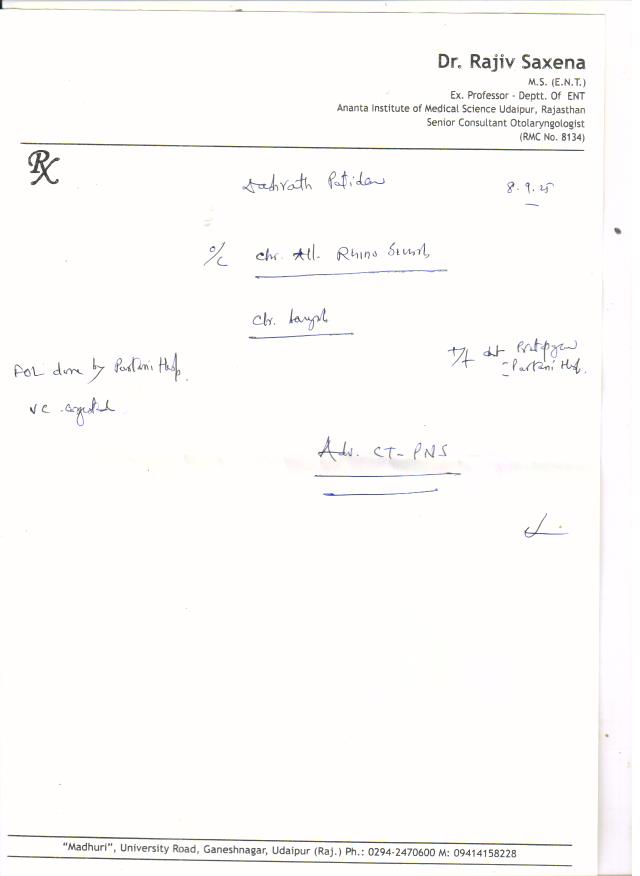 Dr. Rajiv Saxena
M.S. (E.N.T.)
Ex. Professor - Deptt. Of ENT
Ananta Institute of Medical Science Udaipur, Rajasthan
Senior Consultant Otolaryngologist
(RMC No. 8134)
Rx
Dashrath Patidar
8.9.25
Chr. All. Rhino
Chr.
T/t at
- Partani Hosp.
done by Partani Hosp.
VC
Adv. CT-PNS
"Madhuri", University Road, Ganeshnagar, Udaipur (Raj.) Ph.: 0294-2470600 M: 09414158228